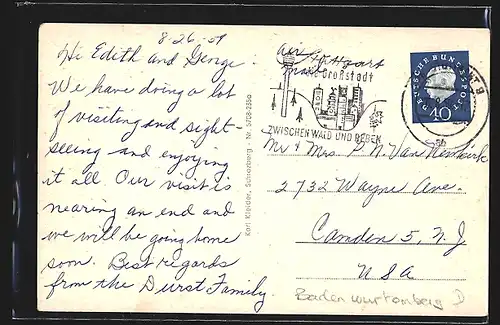 8-26-59
Hi Edith and George
We have doing a lot
of visiting and sight-
seeing and enjoying
it all. Our visit is
nearing an end and
we will be going home
soon. Best regards
from the Durst Family.
Karl Kleider, Schnorkierg · Nr. 5708/235a
air
mail
Stuttgart
Großstadt
ZWISCHEN WALD UND REBEN
DEUTSCHE BUNDESPOST
40
Mr & Mrs. P. N. Van
2732 Wayne Ave.
Camden 5, N. J.
USA
Baden wurtemberg D